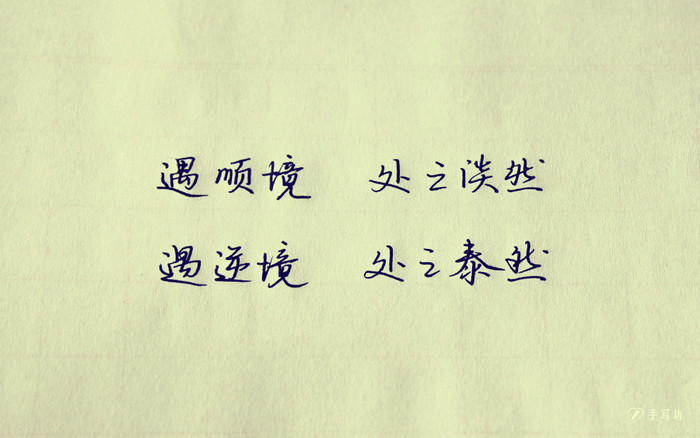 遇顺境 处之淡然
遇逆境 处之泰然
手写坊